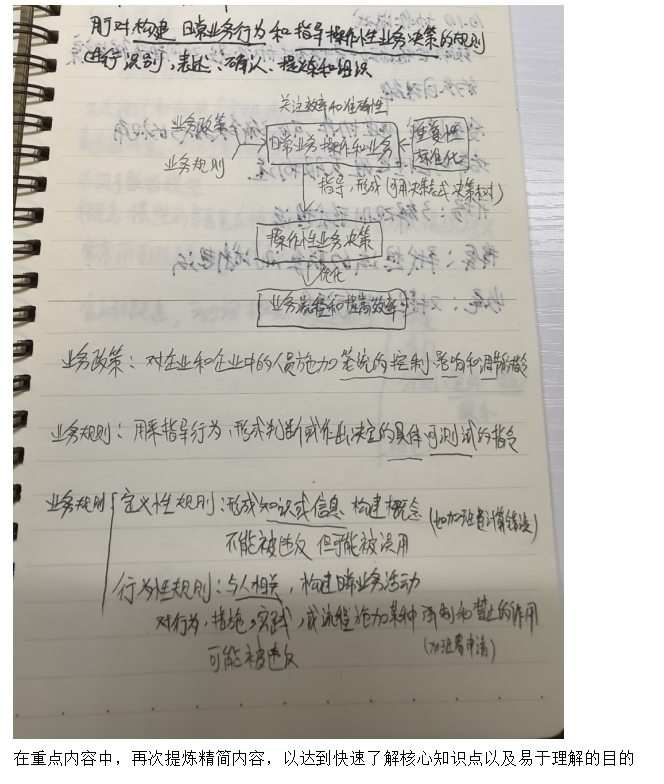 用对构建 日常业务行为和指导操作性业务决策的规则
进行识别、表述、确认、提炼和组织
关注效率和准确性
业务政策
业务规则
日常业务操作和业务
重复性
标准化
指导、形成(可用决策表或决策树)
操作性业务决策
优化
业务流程和提高效率
业务政策:对企业和企业中的人员施加笼统的控制、影响和调节的指令
业务规则:用来指导行为、形成判断或作出决定的具体可测试的指令
业务规则
定义性规则:形成知识或信息 构建概念 (如加班费计算错误)
不能被违反 但可能被误用
行为性规则:与人相关,构建日常业务活动
对行为,措施,实践,或流程施加某种 强制和禁止的作用
可能被违反
(加班费申请)
在重点内容中，再次提炼精简内容，以达到快速了解核心知识点以及易于理解的目的